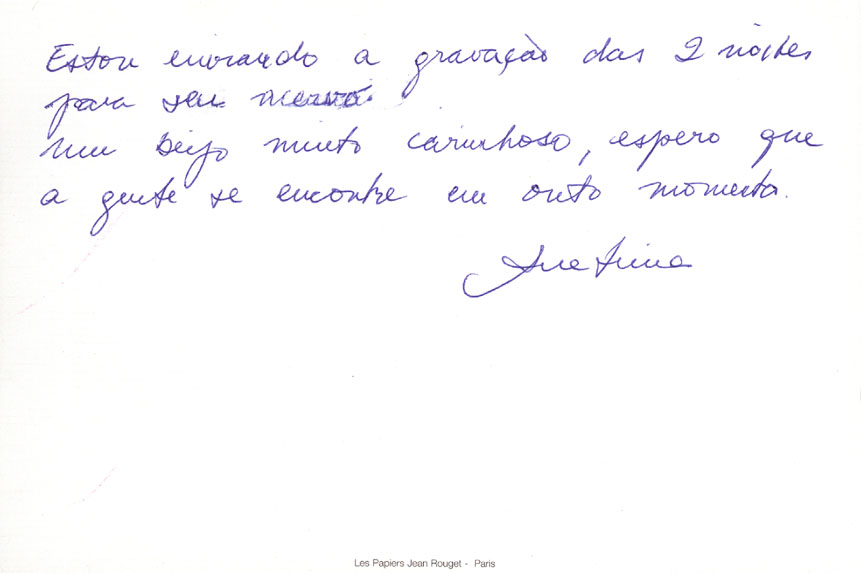 Estou enviando a gravação das 2 noites
para seu acervo.
Um beijo muito carinhoso, espero que
a gente se encontre em outro momento.
Ana Lima
Les Papiers Jean Rouget - Paris